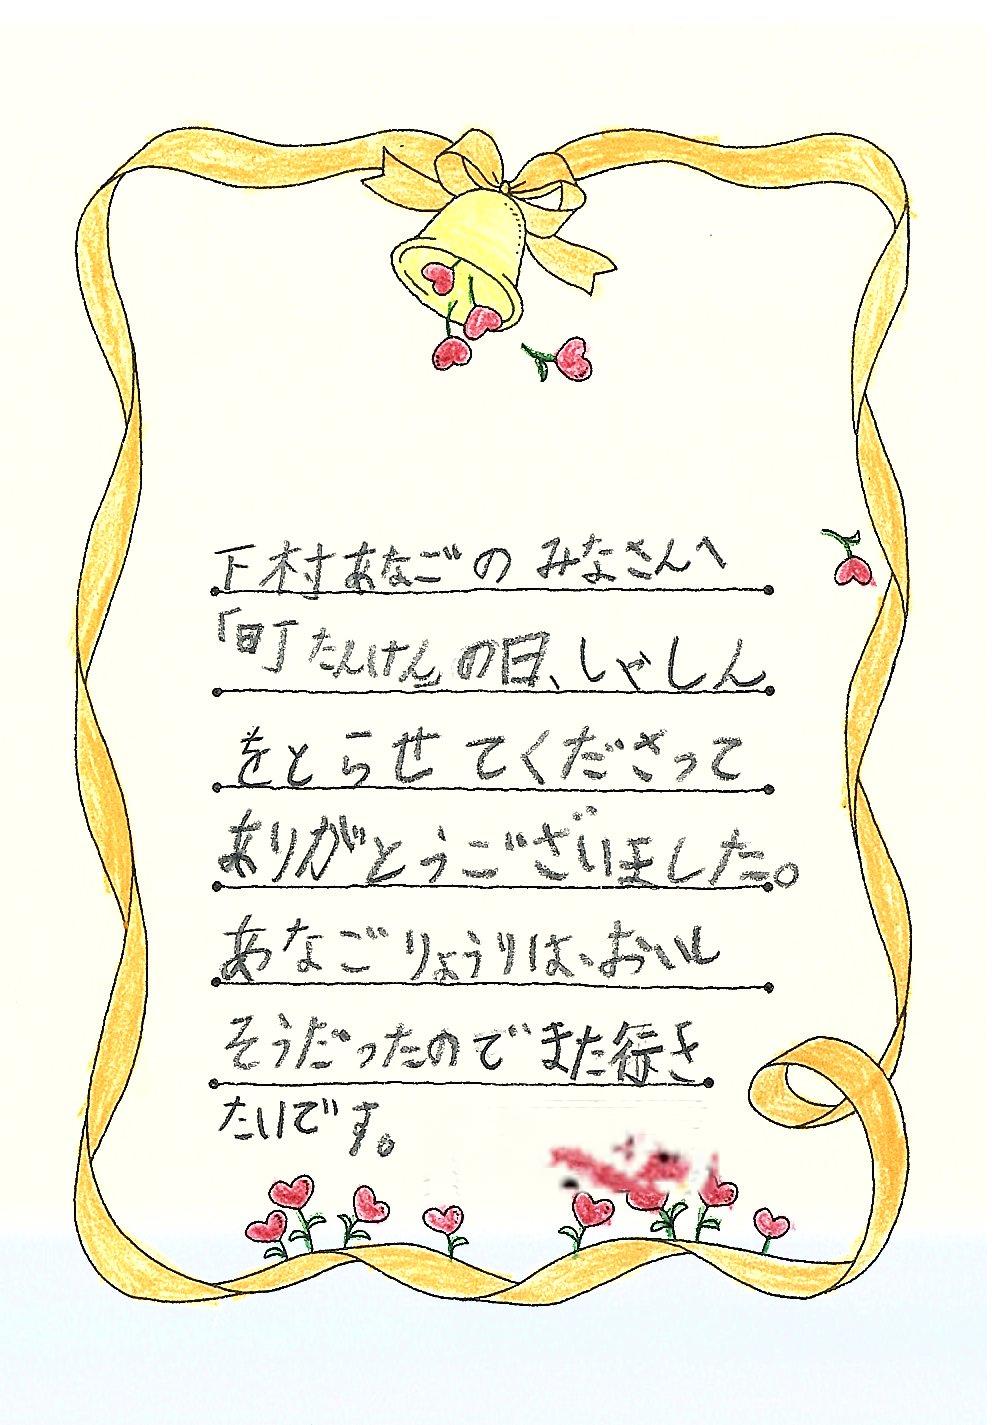 下村あなごの みなさんへ
「町たんけん」の日、しゃしん
をとらせてくださって
ありがとうございました。
あなごりょうりは、おいし
そうだったのでまた行き
たいです。